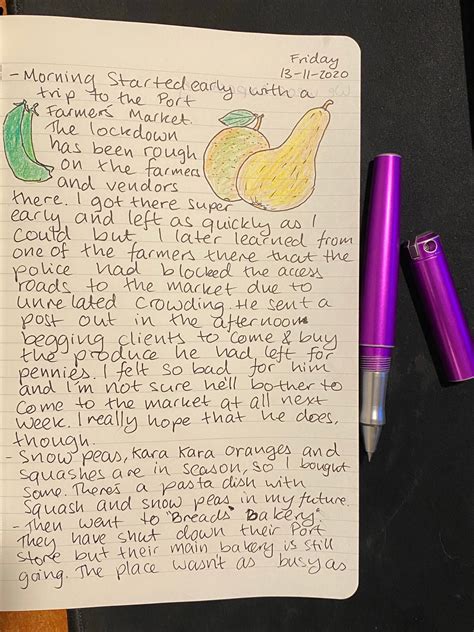 Friday
13-11-2020
- Morning Started early with a
trip to the Port
Farmers Market.
The lockdown
has been rough
on the farmers
and vendors
there. I got there super
early and left as quickly as I
could but I later learned from
one of the farmers there that the
police had blocked the access
roads to the market due to
unrelated crowding. He sent a
post out in the afternoon
begging clients to come & buy
the produce he had left for
pennies. I felt so bad for him
and I'm not sure he'll bother to
come to the market at all next
week. I really hope that he does,
though.
- Snow peas, Kara Kara oranges and
squashes are in season, so I bought
some. There's a pasta dish with
squash and snow peas in my future.
- Then went to "Breads Bakery".
They have shut down their Port
store but their main bakery is still
going. The place wasn't as busy as